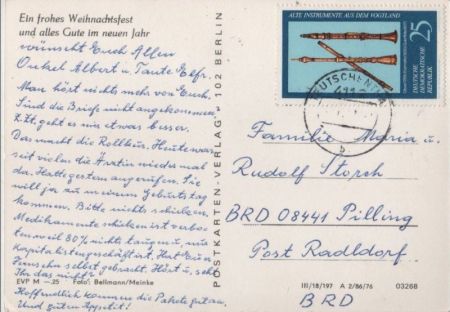 Ein frohes Weihnachtsfest
und alles Gute im neuen Jahr
wünscht Euch Allen
Onkel Albert u. Tante Elfr.
Man hört nichts mehr von Euch.
Sind die Briefe nicht angekommen.
Z.Zt. geht es mir etwas besser.
Das macht die Rollkur. Heute war
seit vielen die Ärztin wieder mal
da. Hatte gestern angerufen. Sie
will ja zu meinem Geburtstag
kommen. Bitte nichts schicken.
Medikamente schicken ist verbo-
ten weil 80% nichts taugen u. nur
Kapitalistengeschäft ist. Hat
Fernsehn selbst gebracht. Hört u. seht
Ihr das nicht?
EVP M –.25 Foto: Bellmann/Meinke
Hoffendlich kommen die Pakete gut an.
Und guten Appetit!
POSTKARTEN-VERLAG 102 BERLIN
ALTE INSTRUMENTE AUS DEM VOGTLAND
25
DEUTSCHE
DEMOKRATISCHE
REPUBLIK
b
Familie Maria u.
Rudolf Storch
BRD 08441 Pilling
Post Radldorf.
III/18/197 A 2/86/76 03268
BRD